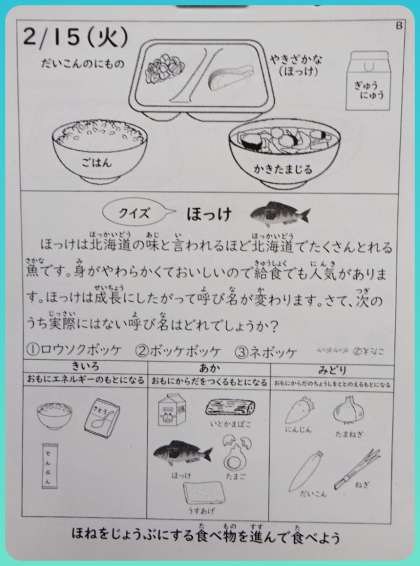 B
2/15(火)
だいこんのにもの
やきざかな
(ほっけ)
ぎゅう
にゅう
ごはん
かきたまじる
クイズ
ほっけ
ほっけは北海道の味と言われるほど北海道でたくさんとれる
魚です。身がやわらかくておいしいので給食でも人気がありま
す。ほっけは成長にしたがって呼び名が変わります。さて、次の
うち実際にはない呼び名はどれでしょうか?
①ロウソクボッケ ②ボッケボッケ ③ネボッケ
きいろ あか みどり
おもにエネルギーのもとになる おもにからだをつくるもとになる おもにからだのちょうしをととのえるもとになる
さとう
でんぷん
いとかまぼこ
ほっけ
たまご
うすあげ
にんじん
たまねぎ
だいこん
ねぎ
ほねをじょうぶにする食べ物を進んで食べよう